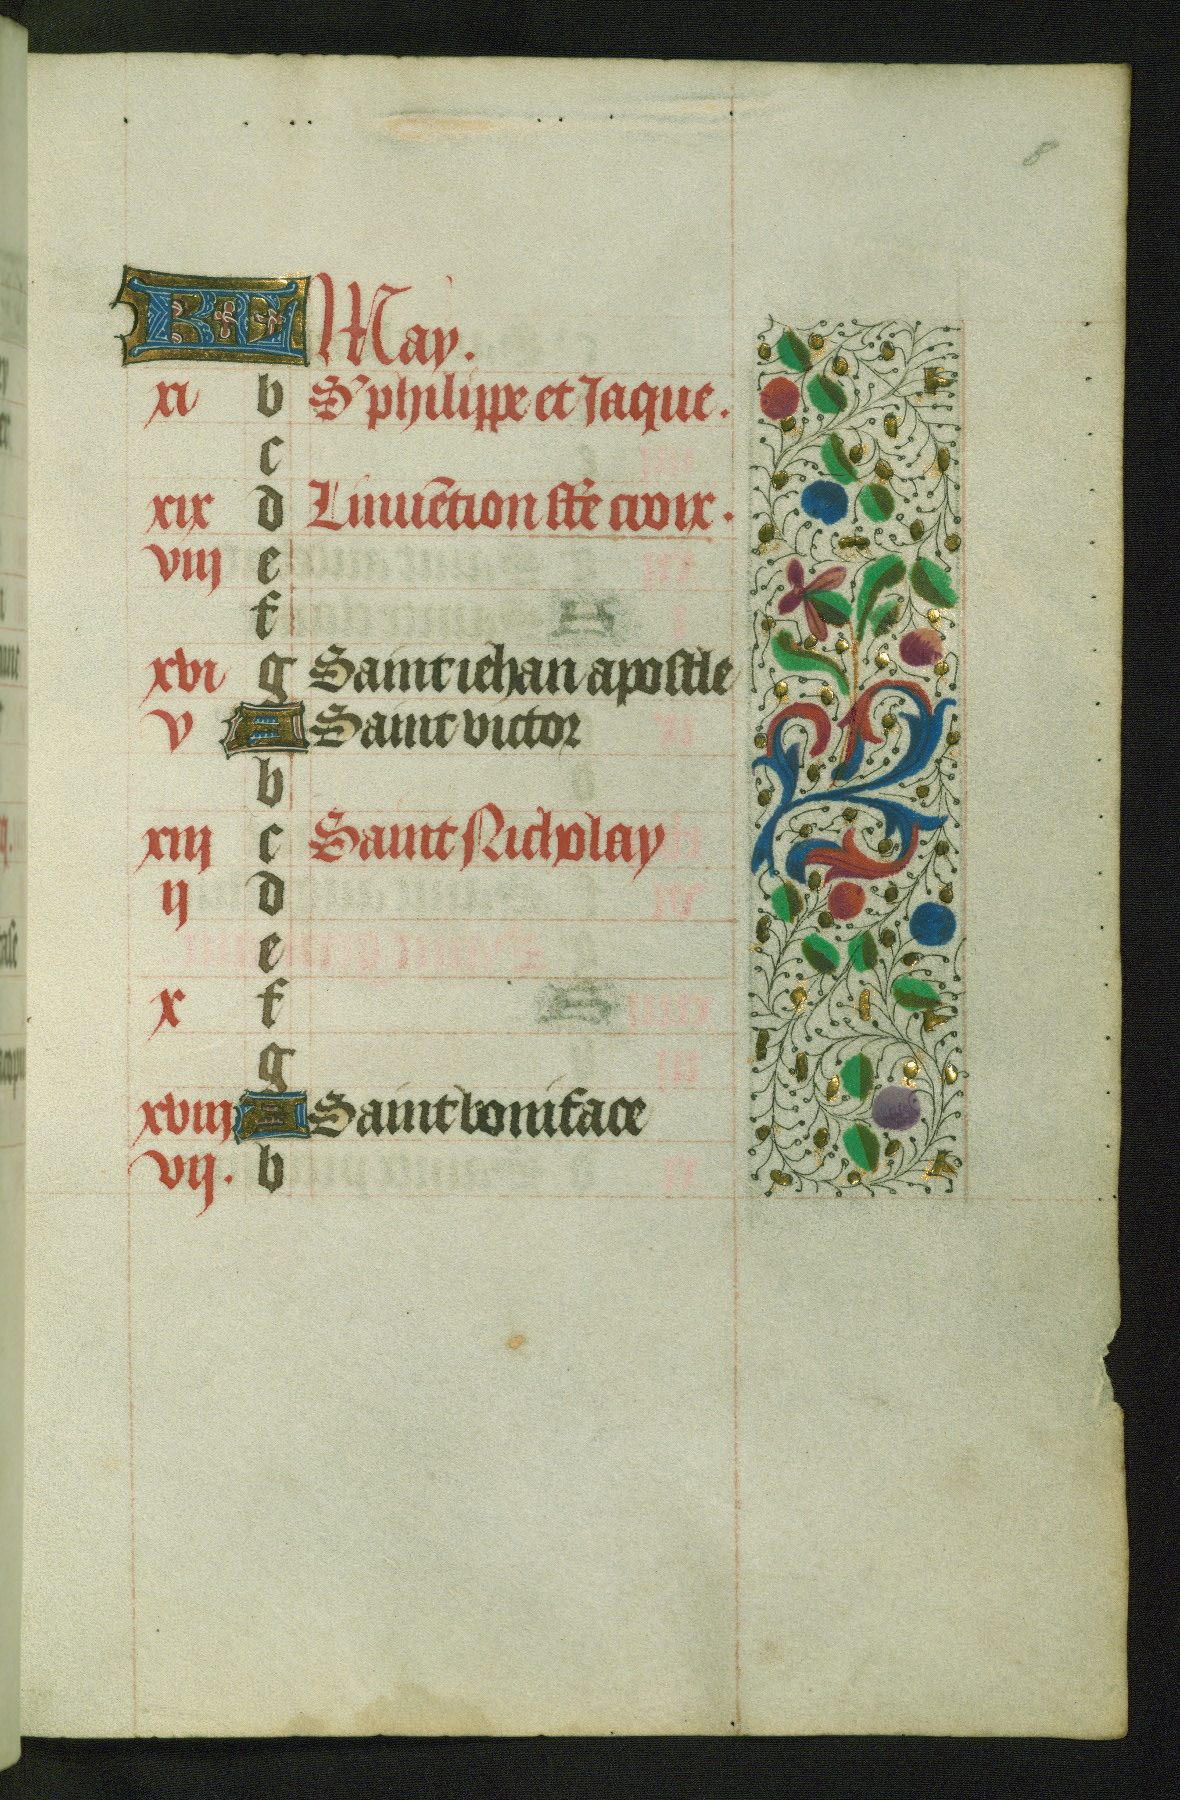 8
KL May.
xi b S' philippe et Jaque.
c
xix d Linuẽtion ste croix.
viii e
f
xvi g Saint iehan apostle
v A Saint victor
b
xiii c Saint Nicholay
ii d
e
x f
g
xviii A Saint boniface
vii. b